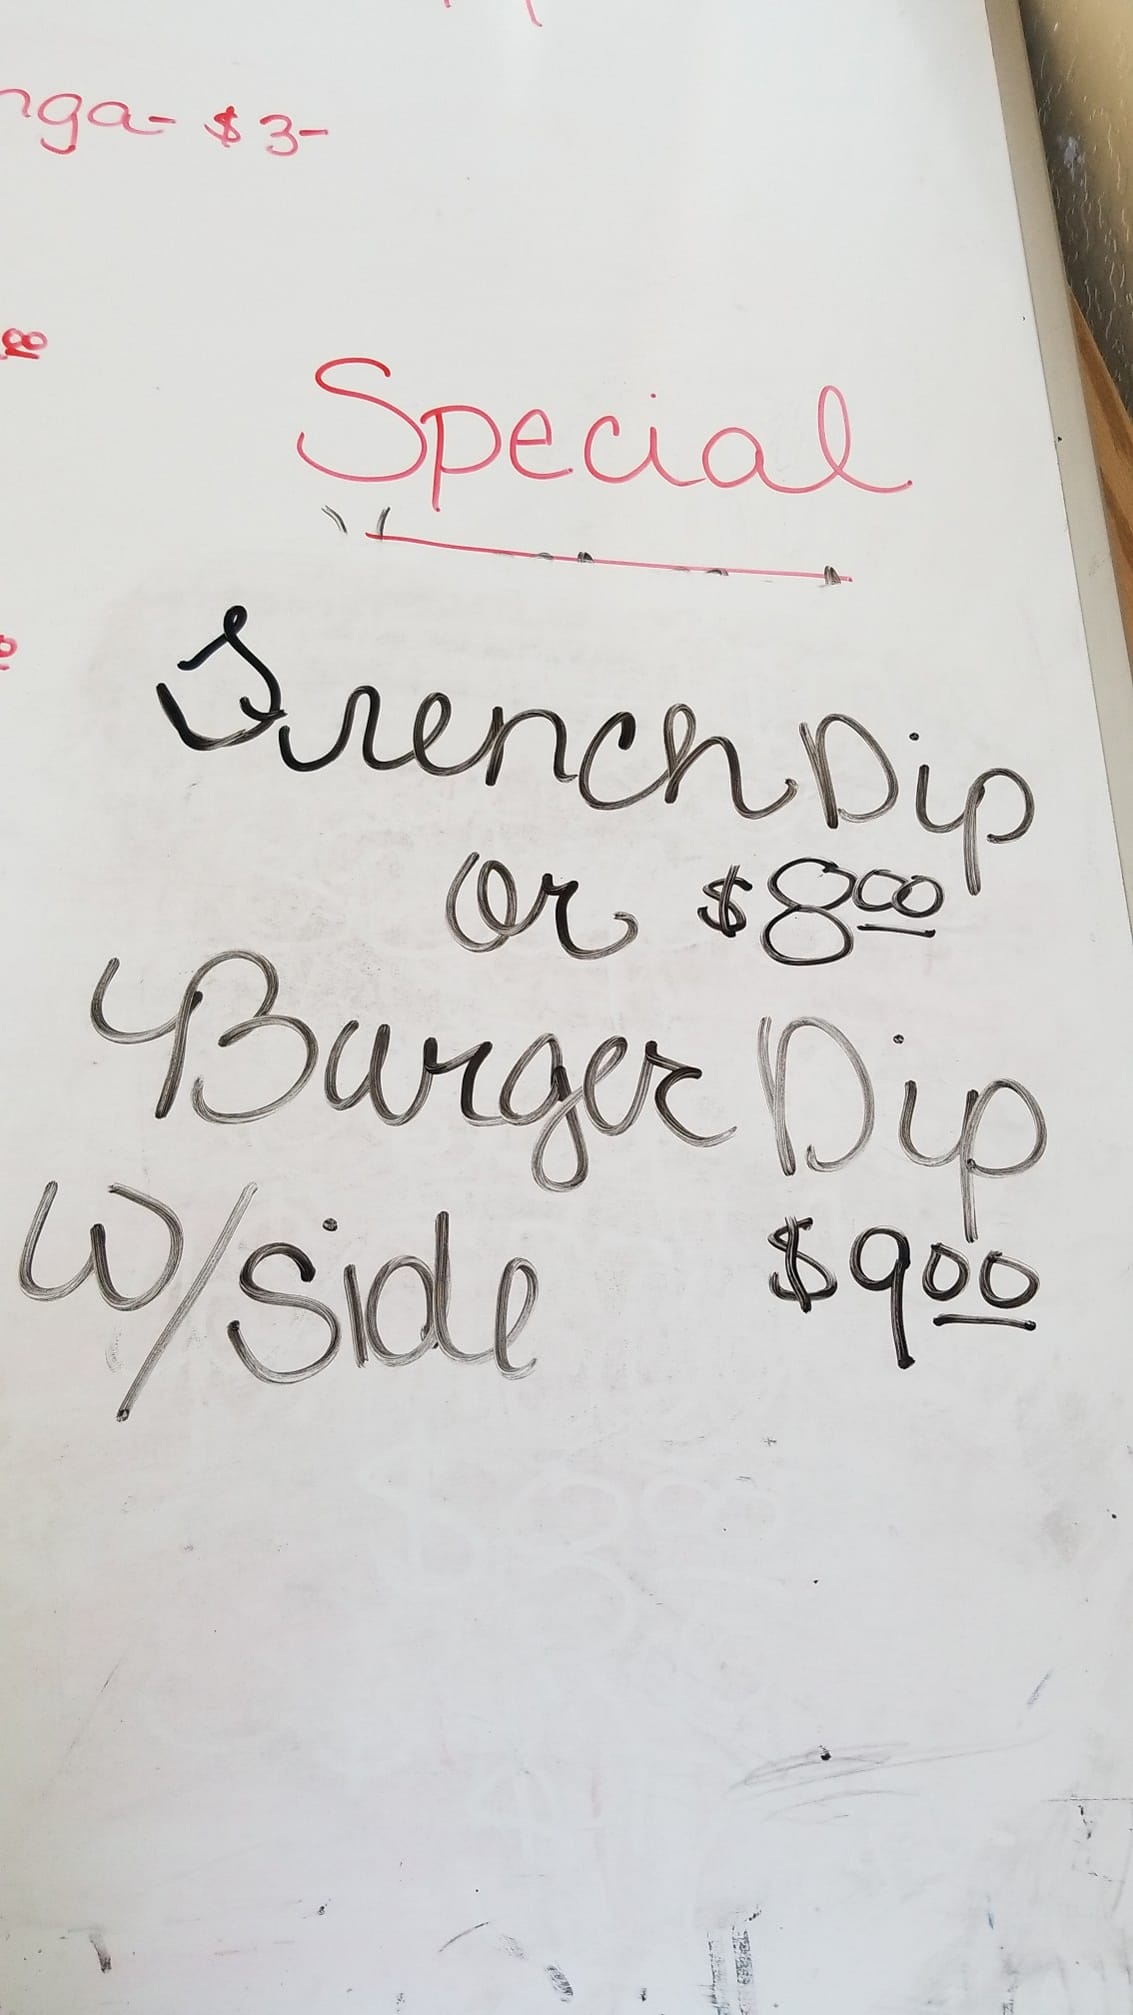 nga- $3-
00
Special
French Dip
or $8.00
Burger Dip
W/side $9.00